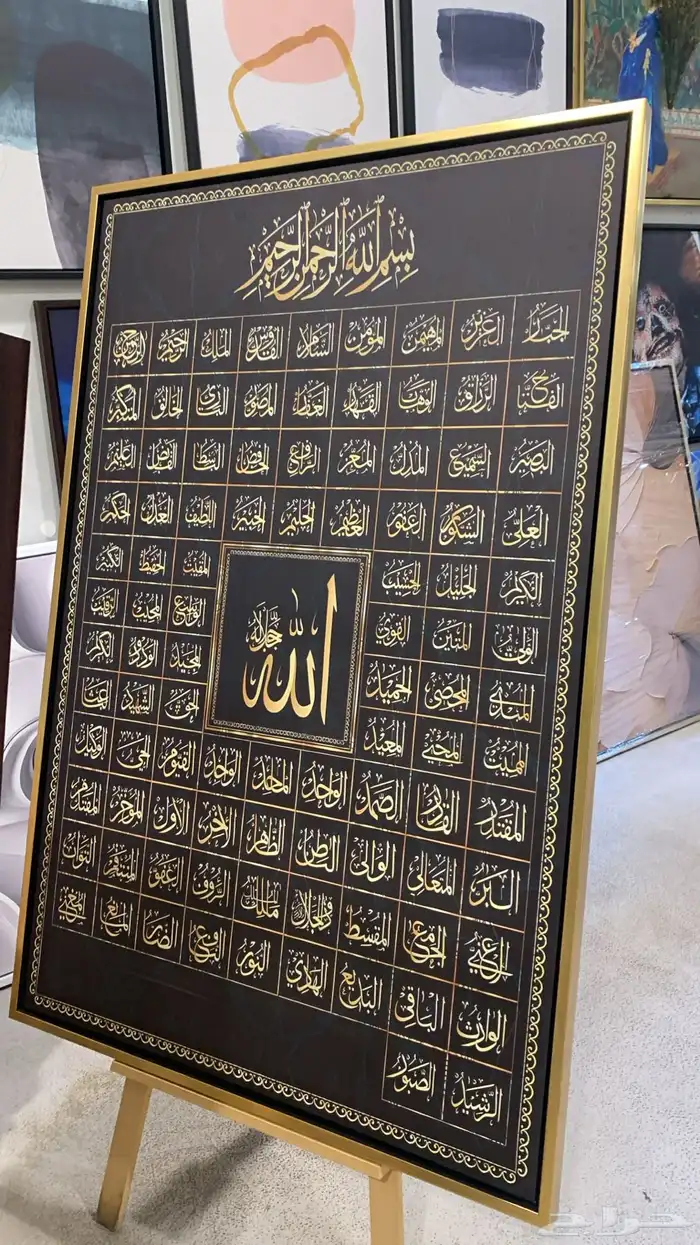 بِسْمِ اللَّهِ الرَّحْمَٰنِ الرَّحِيمِ
الجبار العزيز المهيمن المؤمن السلام القدوس الملك الرحيم الرحمن
الفتاح الرزاق الوهاب القهار الغفار المصور البارئ الخالق المتكبر
البصير السميع المذل المعز الرافع الخافض الباسط القابض العليم
العلي الشكور الغفور العظيم الحليم الخبير اللطيف العدل الحكم
الكريم الجليل الحسيب المقيت الحفيظ الكبير
الولي المتين القوي الواسع المجيب الرقيب
الله جل جلاله
المبدئ المحصي الحميد المجيد الودود الحكيم
المميت المحيي المعيد الحق الشهيد الباعث
المقتدر القادر الصمد الواحد الماجد الواجد القيوم الحي الوكيل
البر المتعالي الوالي الباطن الظاهر الآخر الأول المؤخر المقدم
الغني الجامع المقسط ذو الجلال مالك الملك الرؤوف العفو المنتقم التواب
الوارث الباقي البديع الهادي النور النافع الضار المانع المغني
الرشيد الصبور
حراج